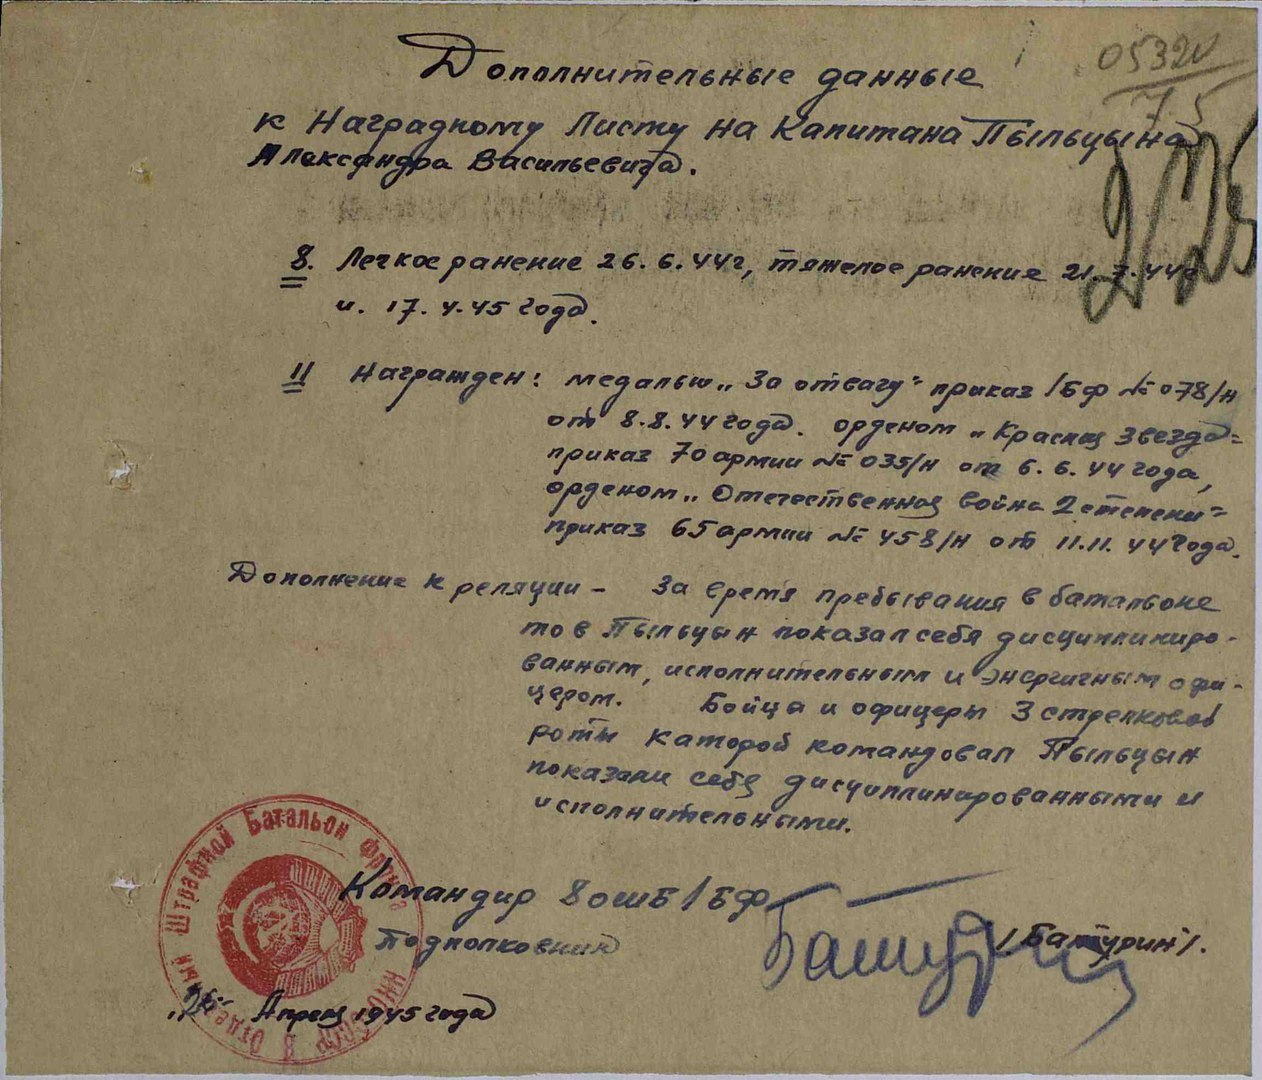 Дополнительные данные
05320
7.5
к Наградному Листу на Капитана Пыльцына
Александра Васильевича.
8. Легкое ранение 26.6.44г, тяжелое ранение 21.7.44г
и. 17.4.45 года.
11 Награжден: медалью „За отвагу" приказ 1БФ №078/н
от 8.8.44 года. орденом „Красная звезда"
приказ 70 армии № 035/н от 6.6.44 года,
орденом „Отечественная война 2 степени"
приказ 65 армии № 458/н от 11.11.44 года.
Дополнение к реляции – За время пребывания в батальоне
тов Пыльцын показал себя дисциплиниро-
ванным, исполнительным и энергичным офи-
цером. Бойца и офицеры 3 стрелковой
роты каторой командовал Пыльцын
показали себя дисциплинированными и
исполнительными.
Командир 8 ОШБ 1БФ
Подполковник
Батурин
/Батурин/.
Апреля 1945 года
8 Отдельный Штрафной Батальон Фронта НКО СССР